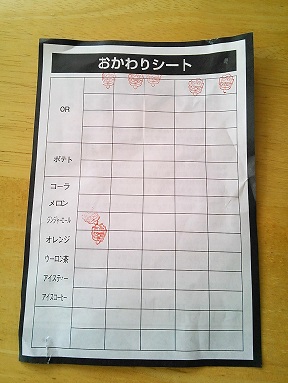 おかわりシート
OR
ポテト
コーラ
メロン
ジンジャーエール
オレンジ
ウーロン茶
アイスティー
アイスコーヒー